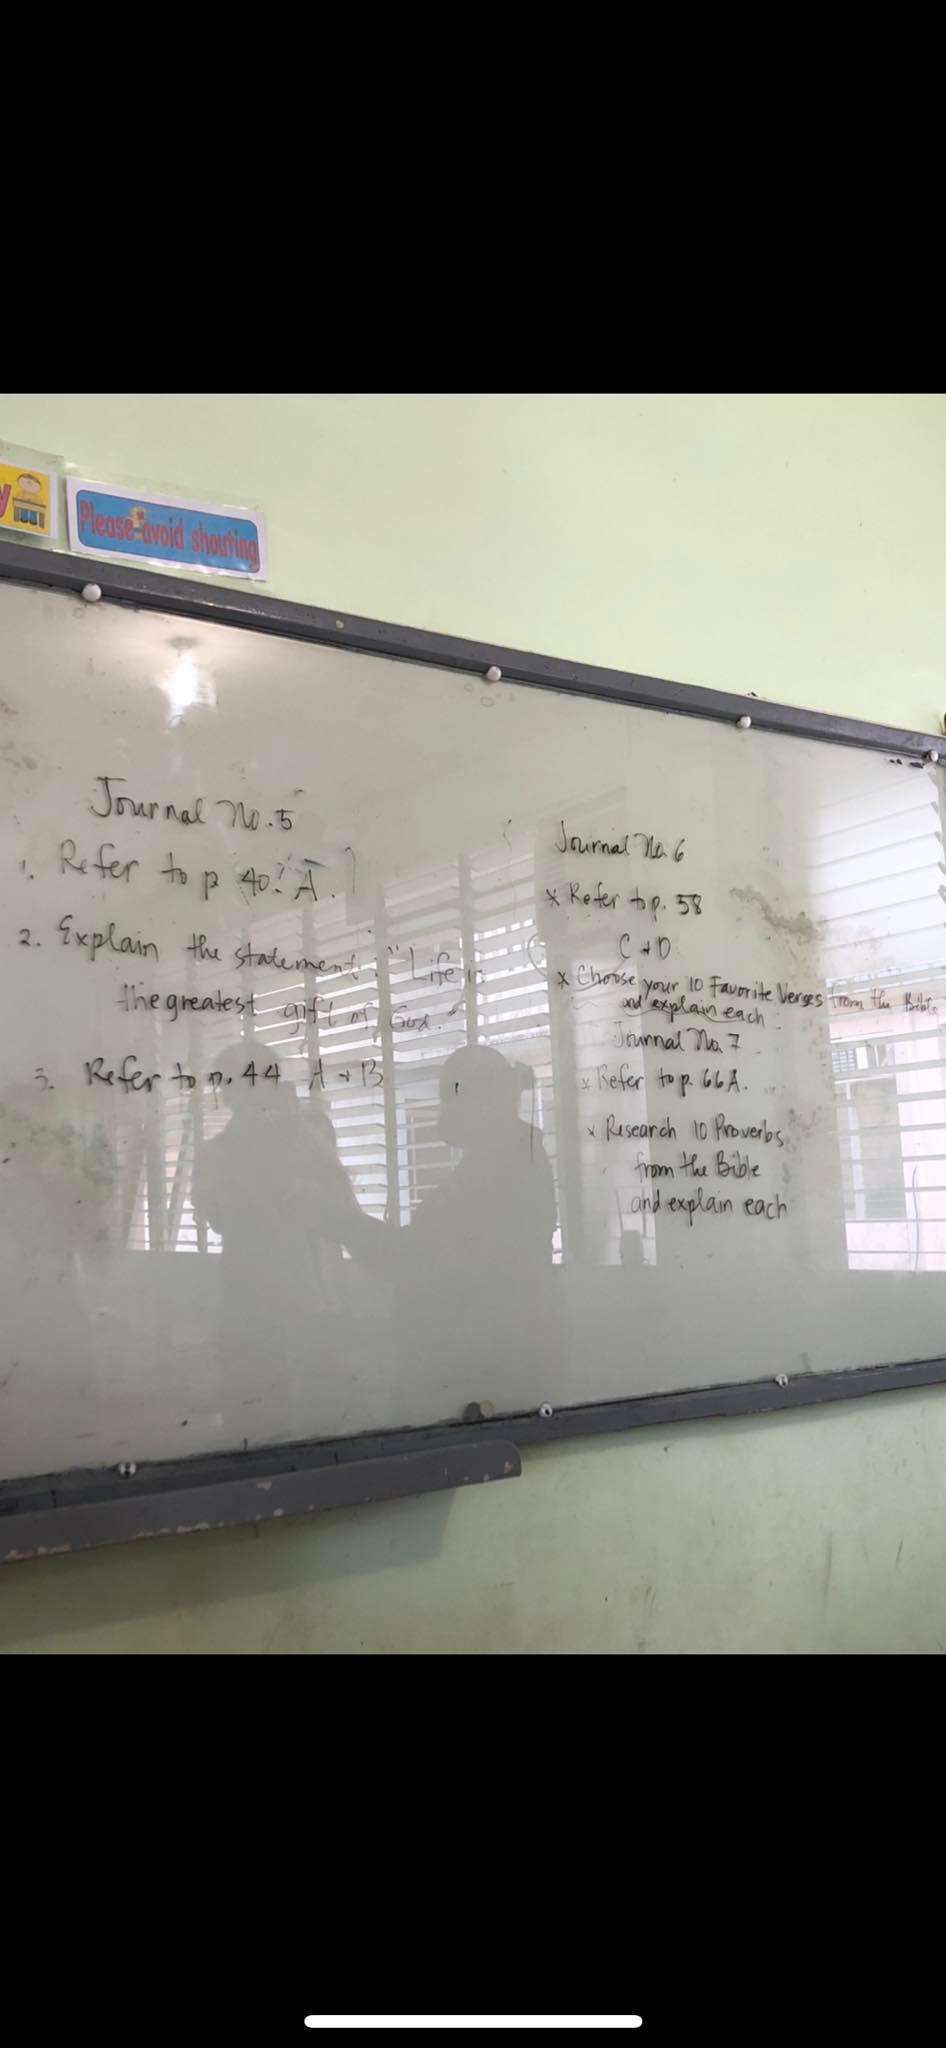 Please avoid shouting
Journal No. 5
1. Refer to p 40. A.
2. Explain the statement: "Life is
the greatest gift of God."
3. Refer to p. 44 A & B
Journal No. 6
* Refer to p. 58
C & D
* Choose your 10 Favorite Verses from the Bible
and explain each
Journal No. 7
* Refer to p. 66 A.
* Research 10 Proverbs
from the Bible
and explain each